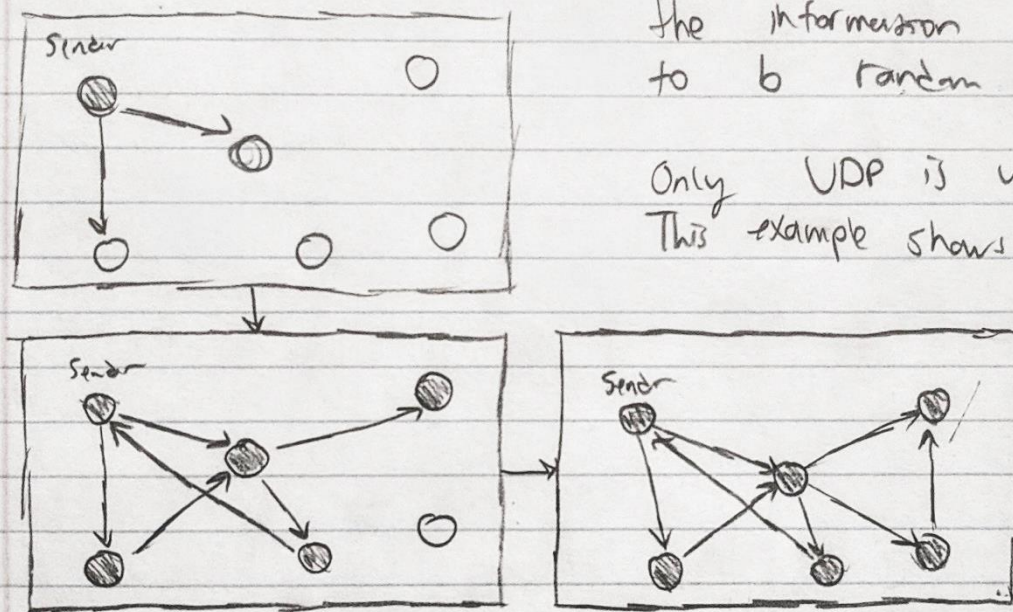 Sender
the information
to b random
Only UDP is
This example shows
Sender
Sender